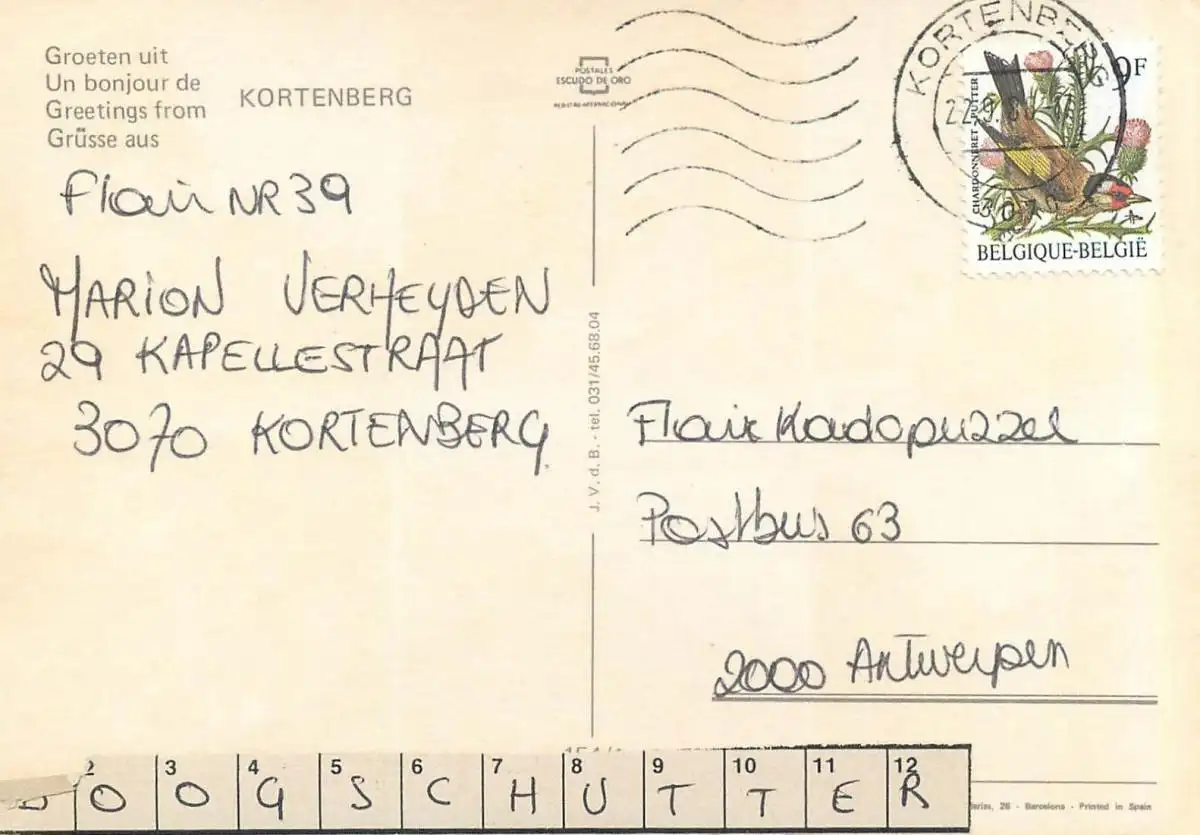 Groeten uit
Un bonjour de
Greetings from
Grüsse aus
KORTENBERG
POSTALES
ESCUDO DE ORO
REGISTRO INTERNACIONAL
KORTENBERG
3070
9F
CHARDONNERET PUTTER
BELGIQUE-BELGIË
Flair NR 39
MARION VERHEYDEN
29 KAPELLESTRAAT
3070 KORTENBERG
J. V. d. B. - tel. 031/45.68.04
Flair Kadopuzzel
Postbus 63
2000 Antwerpen
2 3 4 5 6 7 8 9 10 11 12
O O G S C H U T T E R
26 - Barcelona - Printed in Spain